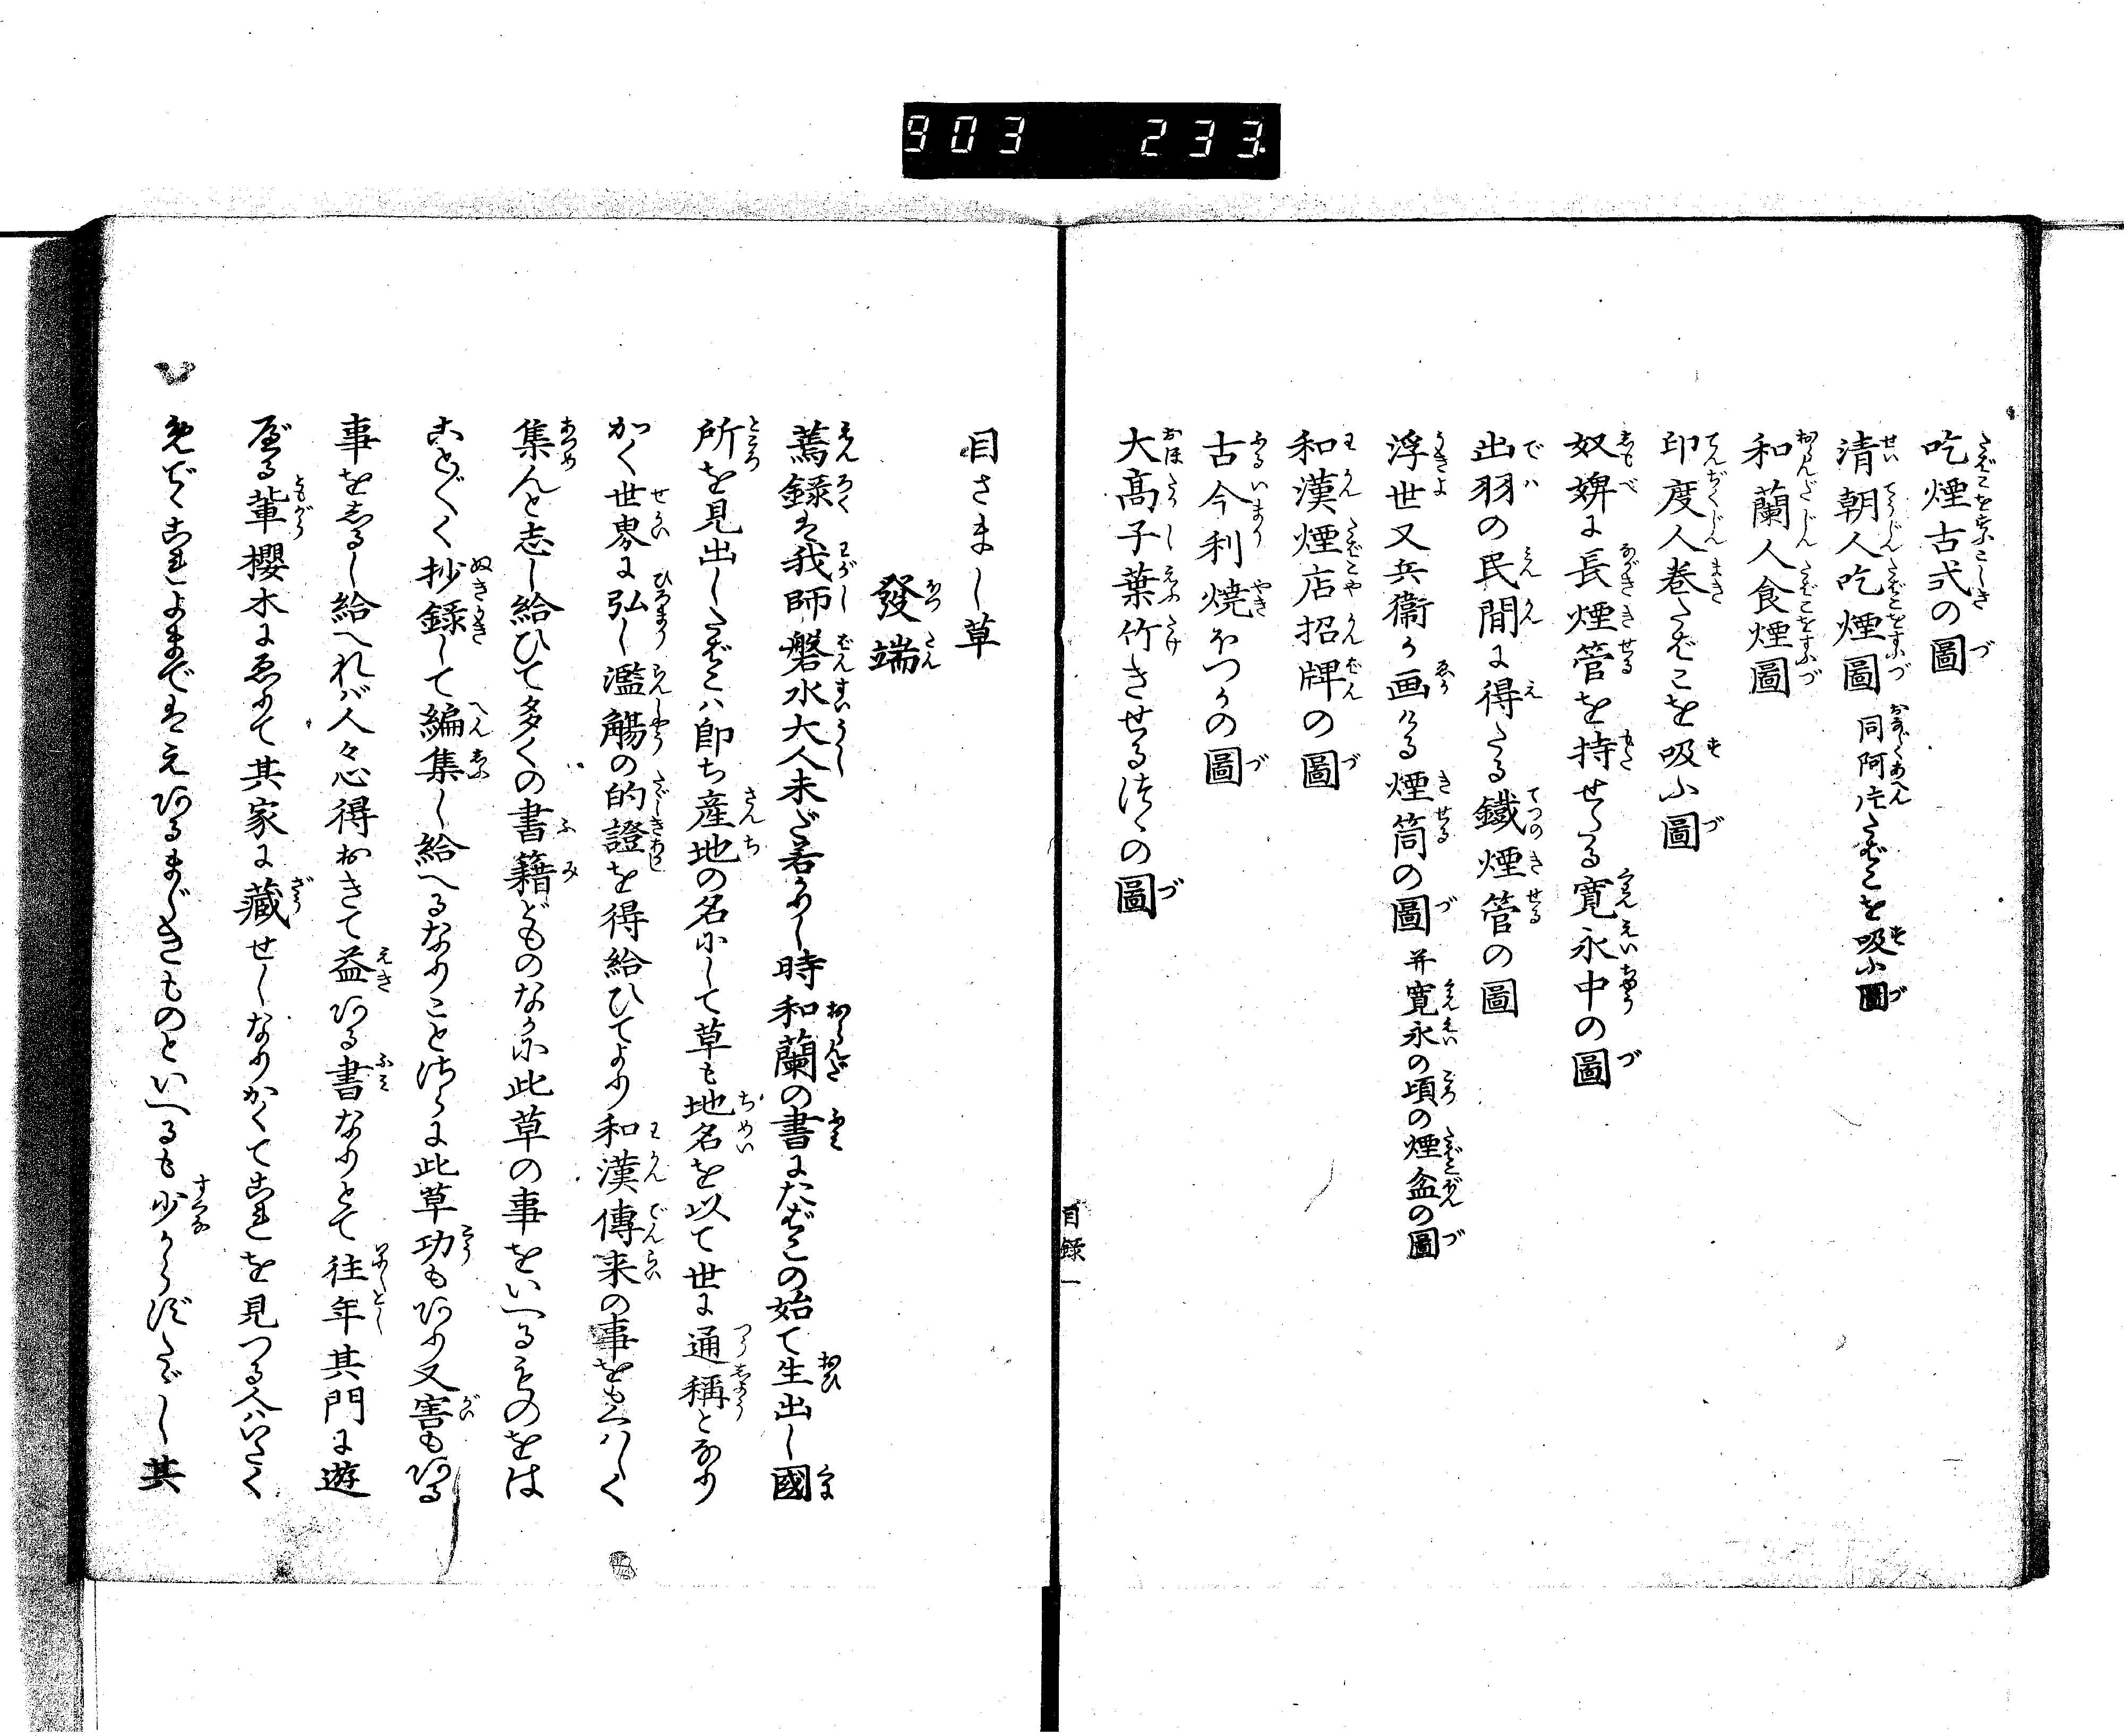 903 233
吃煙古弍の圖
清朝人吃煙圖 同阿片たばこを吸ふ圖
和蘭人食煙圖
印度人巻たばこを吸ふ圖
奴婢に長煙管を持せたる寛永中の圖
出羽の民間に得たる鐵煙管の圖
浮世又兵衞か画ける煙筒の圖 并寛永の頃の煙盆の圖
和漢煙店招牌の圖
古今利焼がつての圖
大髙子葉竹きせる
目録一
目さまし草
發端
蔫録は我師磐水大人未だ若かりし時和蘭の書にたばこの始て生出し國
所を見出したばこハ即ち産地の名にして草も地名を以て世に通稱となり
かく世界に弘し濫觴の的證を得給ひてより和漢傳来の事をもくハしく
集んと志し給ひて多くの書籍どものなかに此草の事をいへるものをは
こと〴〵く抄録して編集し給へるなりことにに此草功もあり又害もある
事をしるし給へれバ人々心得おきて益ある書なりとて往年其門に遊
べる輩櫻木にゑりて其家に藏せしなりかくてこれを見つる人ハいたく
めでゝこれよまでは えあるまじきものといへるも少からずたゞし其